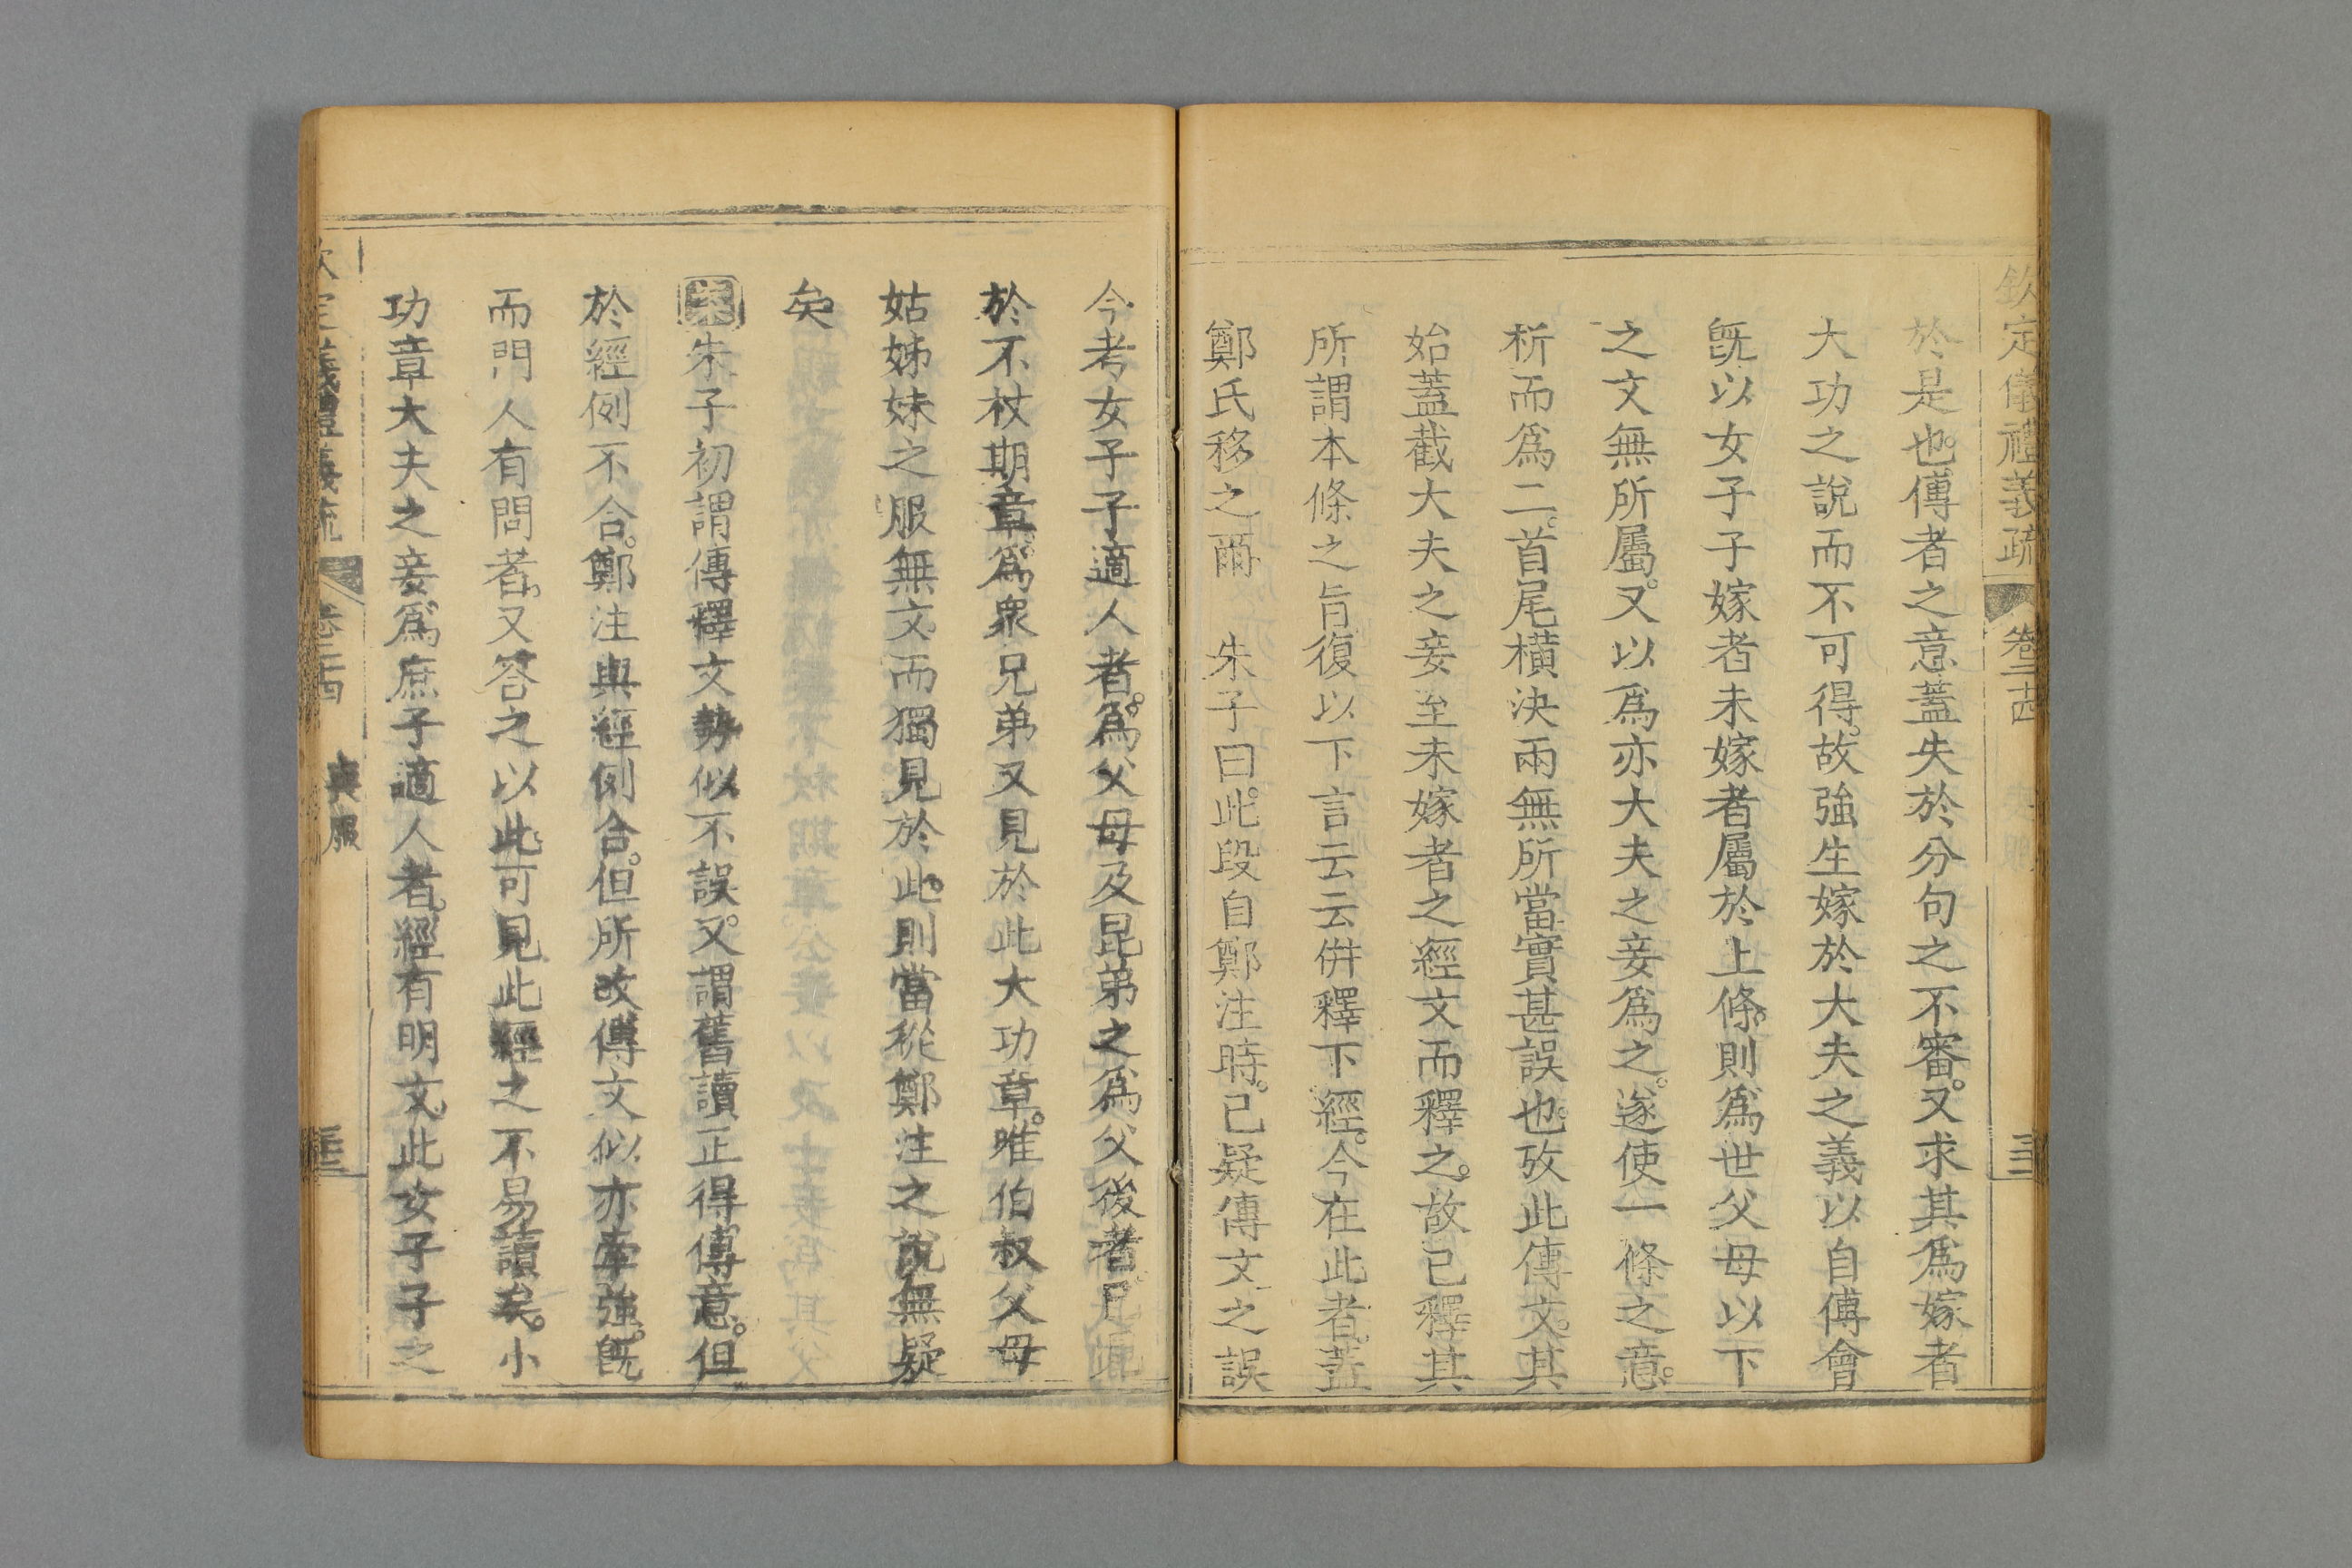 欽定儀禮義疏 卷二十四
於是也。傳者之意蓋失於分句之不審。又求其爲嫁者
大功之說而不可得。故強生嫁於大夫之義以自傅會
旣以女子子嫁者未嫁者屬於上條。則爲世父母以下
之文無所屬。又以爲亦大夫之妾爲之。遂使一條之意。
析而爲二。首尾橫決兩無所當實甚誤也。攷此傳文。其
始蓋截大夫之妾至未嫁者之經文而釋之。故已釋其
所謂本條之旨復以下言云云倂釋下經。今在此者。蓋
鄭氏移之爾 朱子曰。此段自鄭注時。已疑傳文之誤
今考女子子適人者。爲父母及昆弟之爲父後者已見
於不杖期章。爲衆兄弟又見於此大功章。唯伯叔父母
姑姊妹之服無文而獨見於此。則當從鄭注之說無疑
矣
案朱子初謂傳釋文勢似不誤。又謂舊讀正得傳意。但
於經例不合。鄭注與經例合。但所改傳文似亦牽強。旣
而門人有問者。又答之以此可見此經之不易讀矣。小
功章大夫之妾爲庶子適人者。經有明文。此女子子之
定義禮義疏 卷二十四 喪服